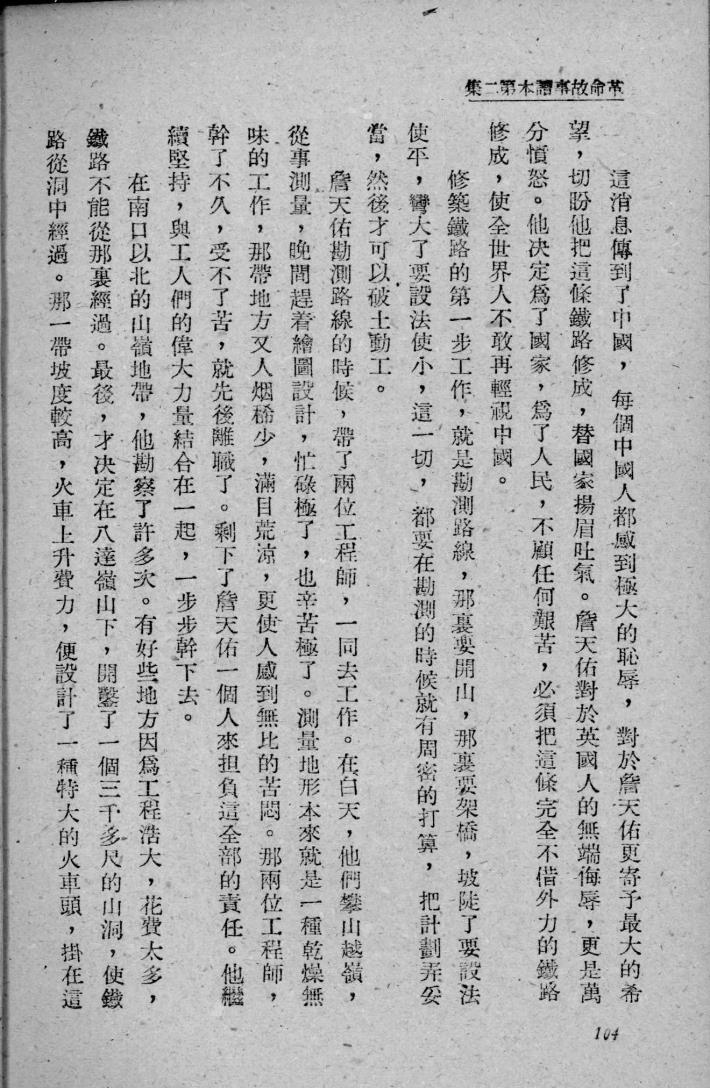 革命故事讀本第二集
這消息傳到了中國，每個中國人都感到極大的恥辱，對於詹天佑更寄予最大的希
望，切盼他把這條鐵路修成，替國家揚眉吐氣。詹天佑對於英國人的無端侮辱，更是萬
分憤怒。他決定爲了國家，爲了人民，不顧任何艱苦，必須把這條完全不借外力的鐵路
修成，使全世界人不敢再輕視中國。
修築鐵路的第一步工作，就是勘測路線，那裏要開山，那裏要架橋，坡陡了要設法
使平，彎大了要設法使小，這一切，都要在勘測的時候就有周密的打算，把計劃弄妥
當，然後才可以破土動工。
詹天佑勘測路線的時候，帶了兩位工程師，一同去工作。在白天，他們攀山越嶺，
從事測量，晚間趕着繪圖設計，忙碌極了，也辛苦極了。測量地形本來就是一種乾燥無
味的工作，那帶地方又人烟稀少，滿目荒涼，更使人感到無比的苦悶。那兩位工程師，
幹了不久，受不了苦，就先後離職了。剩下了詹天佑一個人來担負這全部的責任。他繼
續堅持，與工人們的偉大力量結合在一起，一步步幹下去。
在南口以北的山嶺地帶，他勘察了許多次。有好些地方因爲工程浩大，花費太多，
鐵路不能從那裏經過。最後，才決定在八達嶺山下，開鑿了一個三千多尺的山洞，使鐵
路從洞中經過。那一帶坡度較高，火車上升費力，便設計了一種特大的火車頭，掛在這
104